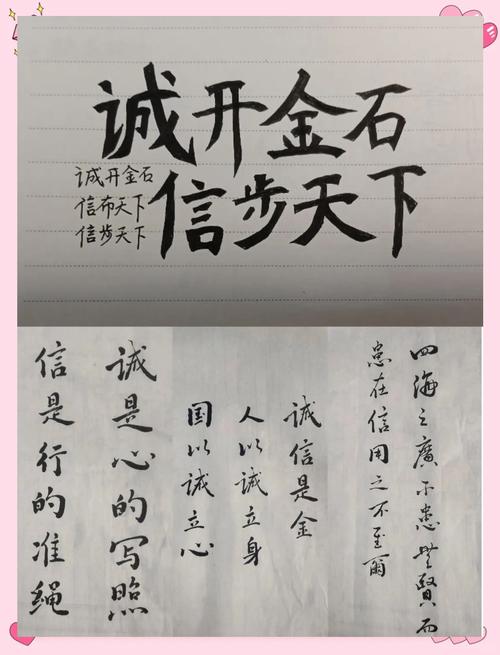 诚开金石
信步天下
诚开金石
信布天下
信步天下
四海之廣不患無賢而
患在信用之不至爾
诚信是金
人以诚立身
国以诚立心
诚是心的写照
信是行的准绳